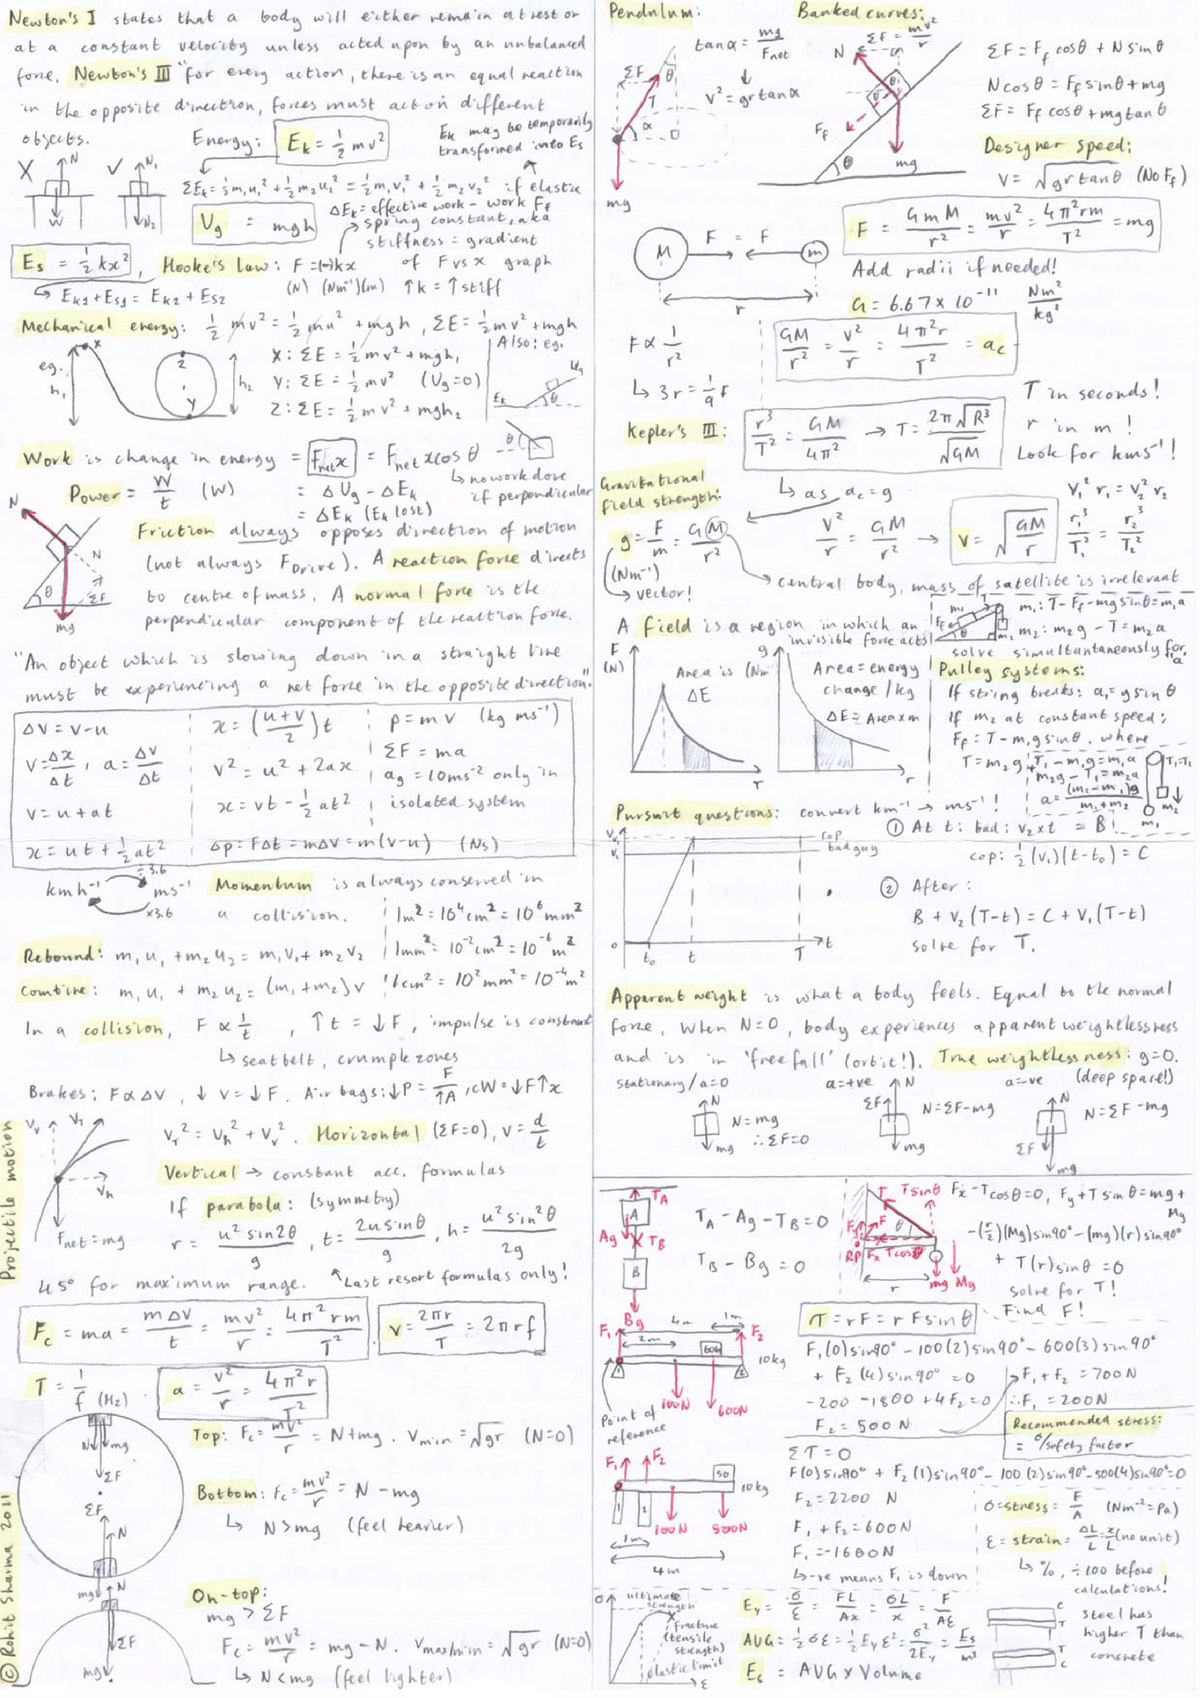 Newton's I states that a body will either remain at rest or
at a constant velocity unless acted upon by an unbalanced
force. Newton's III "for every action, there is an equal reaction
in the opposite direction, forces must act on different
objects.
Energy: Ek = ½mv²
Ek may be temporarily
transformed into Es
X N W
✓ N₁ N₂
ΣEk = ½m₁u₁² + ½m₂u₂² = ½m₁v₁² + ½m₂v₂² if elastic
ΔEk = effective work - work Ff
Ug = mgh
spring constant, aka
stiffness = gradient
of F vs x graph
Es = ½kx², Hooke's Law: F = (-)kx
(N) (Nm⁻¹)(m) ↑k = ↑stiff
↳ Ek1 + Es1 = Ek2 + Es2
Mechanical energy: ½mv² = ½mu² + mgh, ΣE = ½mv² + mgh
eg. h₁ x z y h₂
X: ΣE = ½mv² + mgh₁
Y: ΣE = ½mv² (Ug=0)
Z: ΣE = ½mv² + mgh₂
Also: eg.
Ug Ek θ
Work is change in energy = Fnet x = Fnet x cos θ
↳ no work done
if perpendicular
Power = W/t (W)
= ΔUg - ΔEk
= ΔEk (Ek lost)
N θ mg ΣF N
Friction always opposes direction of motion
(not always FDrive). A reaction force directs
to centre of mass. A normal force is the
perpendicular component of the reaction force.
"An object which is slowing down in a straight line
must be experiencing a net force in the opposite direction."
ΔV = v-u
x = ((u+v)/2)t
p = mv (kg ms⁻¹)
V = Δx/Δt, a = Δv/Δt
v² = u² + 2ax
ΣF = ma
ag = 10ms⁻² only in
isolated system
v = u + at
x = vt - ½at²
x = ut + ½at²
Δp = FΔt = mΔv = m(v-u) (Ns)
kmh⁻¹ ÷3.6 ms⁻¹ ×3.6
Momentum is always conserved in
a collision.
1m² = 10⁴cm² = 10⁶mm²
Rebound: m₁u₁ + m₂u₂ = m₁v₁ + m₂v₂
1mm² = 10⁻²cm² = 10⁻⁶m²
Combine: m₁u₁ + m₂u₂ = (m₁+m₂)v
1cm² = 10²mm² = 10⁻⁴m²
In a collision, F ∝ 1/t, ↑t = ↓F, impulse is constant
↳ seatbelt, crumple zones
Brakes: F ∝ ΔV, ↓v = ↓F. Air bags: ↓P = F/↑A, cW = ↓F↑x
Projectile motion
Vv VT Vh Fnet = mg
VT² = Vh² + Vv². Horizontal (ΣF=0), v = d/t
Vertical → constant acc. formulas
If parabola: (symmetry)
r = u² sin2θ/g, t = 2u sinθ/g, h = u² sin²θ/2g
45° for maximum range. ↖Last resort formulas only!
Fc = ma = mΔv/t = mv²/r = 4π²rm/T²
V = 2πr/T = 2πrf
T = 1/f (Hz)
a = v²/r = 4π²r/T²
N mg ΣF
Top: Fc = mv²/r = N + mg. Vmin = √gr (N=0)
ΣF N mg
Bottom: Fc = mv²/r = N - mg
↳ N > mg (feel heavier)
On-top:
mg > ΣF
N ΣF mg
Fc = mv²/r = mg - N. Vmax/min = √gr (N=0)
↳ N < mg (feel lighter)
© Rohit Sharma 2011
Pendulum:
tanα = mg/Fnet
v² = gr tanα
ΣF θ T α mg
Banked curves:
ΣF = mv²/r
N θ Ff mg θ
ΣF = Ff cosθ + N sinθ
N cosθ = Ff sinθ + mg
ΣF = Ff cosθ + mg tanθ
Designer speed:
V = √gr tanθ (No Ff)
F = GmM/r² = mv²/r = 4π²rm/T² = mg
M F = F m r
Add radii if needed!
G = 6.67 × 10⁻¹¹ Nm²/kg²
F ∝ 1/r²
↳ 3r = 1/9 F
GM/r² = v²/r = 4π²r/T² = ac
T in seconds!
r in m!
Look for kms⁻¹!
Kepler's III: r³/T² = GM/4π² → T = 2π√R³/√GM
Gravitational
field strength:
↳ as ac = g
g = F/m = GM/r²
(Nm⁻¹)
↳ vector!
v²/r = GM/r² → v = √GM/r
V₁² r₁ = V₂² r₂
r₁³/T₁² = r₂³/T₂²
central body, mass of satellite is irrelevant
A field is a region in which an
invisible force acts
m₁: T - Ff - mg sinθ = m₁a
m₂: m₂g - T = m₂a
solve simultantaneously for
a
F (N) Area is ΔE r
g (Nm⁻¹) Area = energy
change/kg
ΔE = Area × m
r
Pulley systems:
If string breaks: a₁ = g sinθ
If m₂ at constant speed:
Ff = T - m₁g sinθ, where
T = m₂g
T₁ - m₁g = m₁a
m₂g - T₁ = m₂a
a = (m₂-m₁)g/m₁+m₂
T₁=T₁ m₂ m₁
Pursuit questions: convert kmh⁻¹ → ms⁻¹!
V₁ V₂ cop bad guy 0 t₀ t T t
① At t: bad: v₂ × t = B
cop: ½(v₁)(t-t₀) = C
② After:
B + V₂(T-t) = C + V₁(T-t)
solve for T.
Apparent weight is what a body feels. Equal to the normal
force. When N=0, body experiences apparent weightlessness
and is in 'free fall' (orbit!). True weightlessness: g=0.
(deep space!)
stationary/a=0
a=+ve
a=-ve
N mg N=mg
∴ΣF=0
ΣF N mg N=ΣF-mg
N ΣF mg N=ΣF-mg
TA A Ag TB B Bg
TA - Ag - TB = 0
TB - Bg = 0
T Tsinθ F θ RP Fx Tcosθ r mg Mg
Fx - Tcosθ = 0, Fy + T sinθ = mg + Mg
-(r/2)(Mg)sin90° - (mg)(r)sin90°
+ T(r)sinθ = 0
solve for T!
Find F!
τ = rF = rF sinθ
F₁ 4m 2m 1m F₂ 60k 10kg 100N 600N
Point of
reference
F₁(0)sin90° - 100(2)sin90° - 600(3)sin90°
+ F₂(4)sin90° = 0
F₁ + F₂ = 700N
-200 - 1800 + 4F₂ = 0
∴F₁ = 200N
F₂ = 500N
Recommended stress:
= σ/safety factor
F₁ F₂ 50 10kg 100N 500N 1m 4m
Στ = 0
F(0)sin90° + F₂(1)sin90° - 100(2)sin90° - 500(4)sin90° = 0
F₂ = 2200 N
F₁ + F₂ = 600N
F₁ = -1600N
↳ -ve means F₁ is down
σ = stress = F/A (Nm⁻² = Pa)
ε = strain = ΔL/L = x/L (no unit)
↳ %, ÷100 before
calculations!
σ ultimate
strength
fracture
(tensile
strength)
elastic limit
ε
Ey = σ/ε = FL/Ax = σL/x = F/Aε
AUG = ½σε = ½Eyε² = σ²/2Ey = Es/m³
Es = AUG × Volume
C T T C
steel has
higher T than
concrete